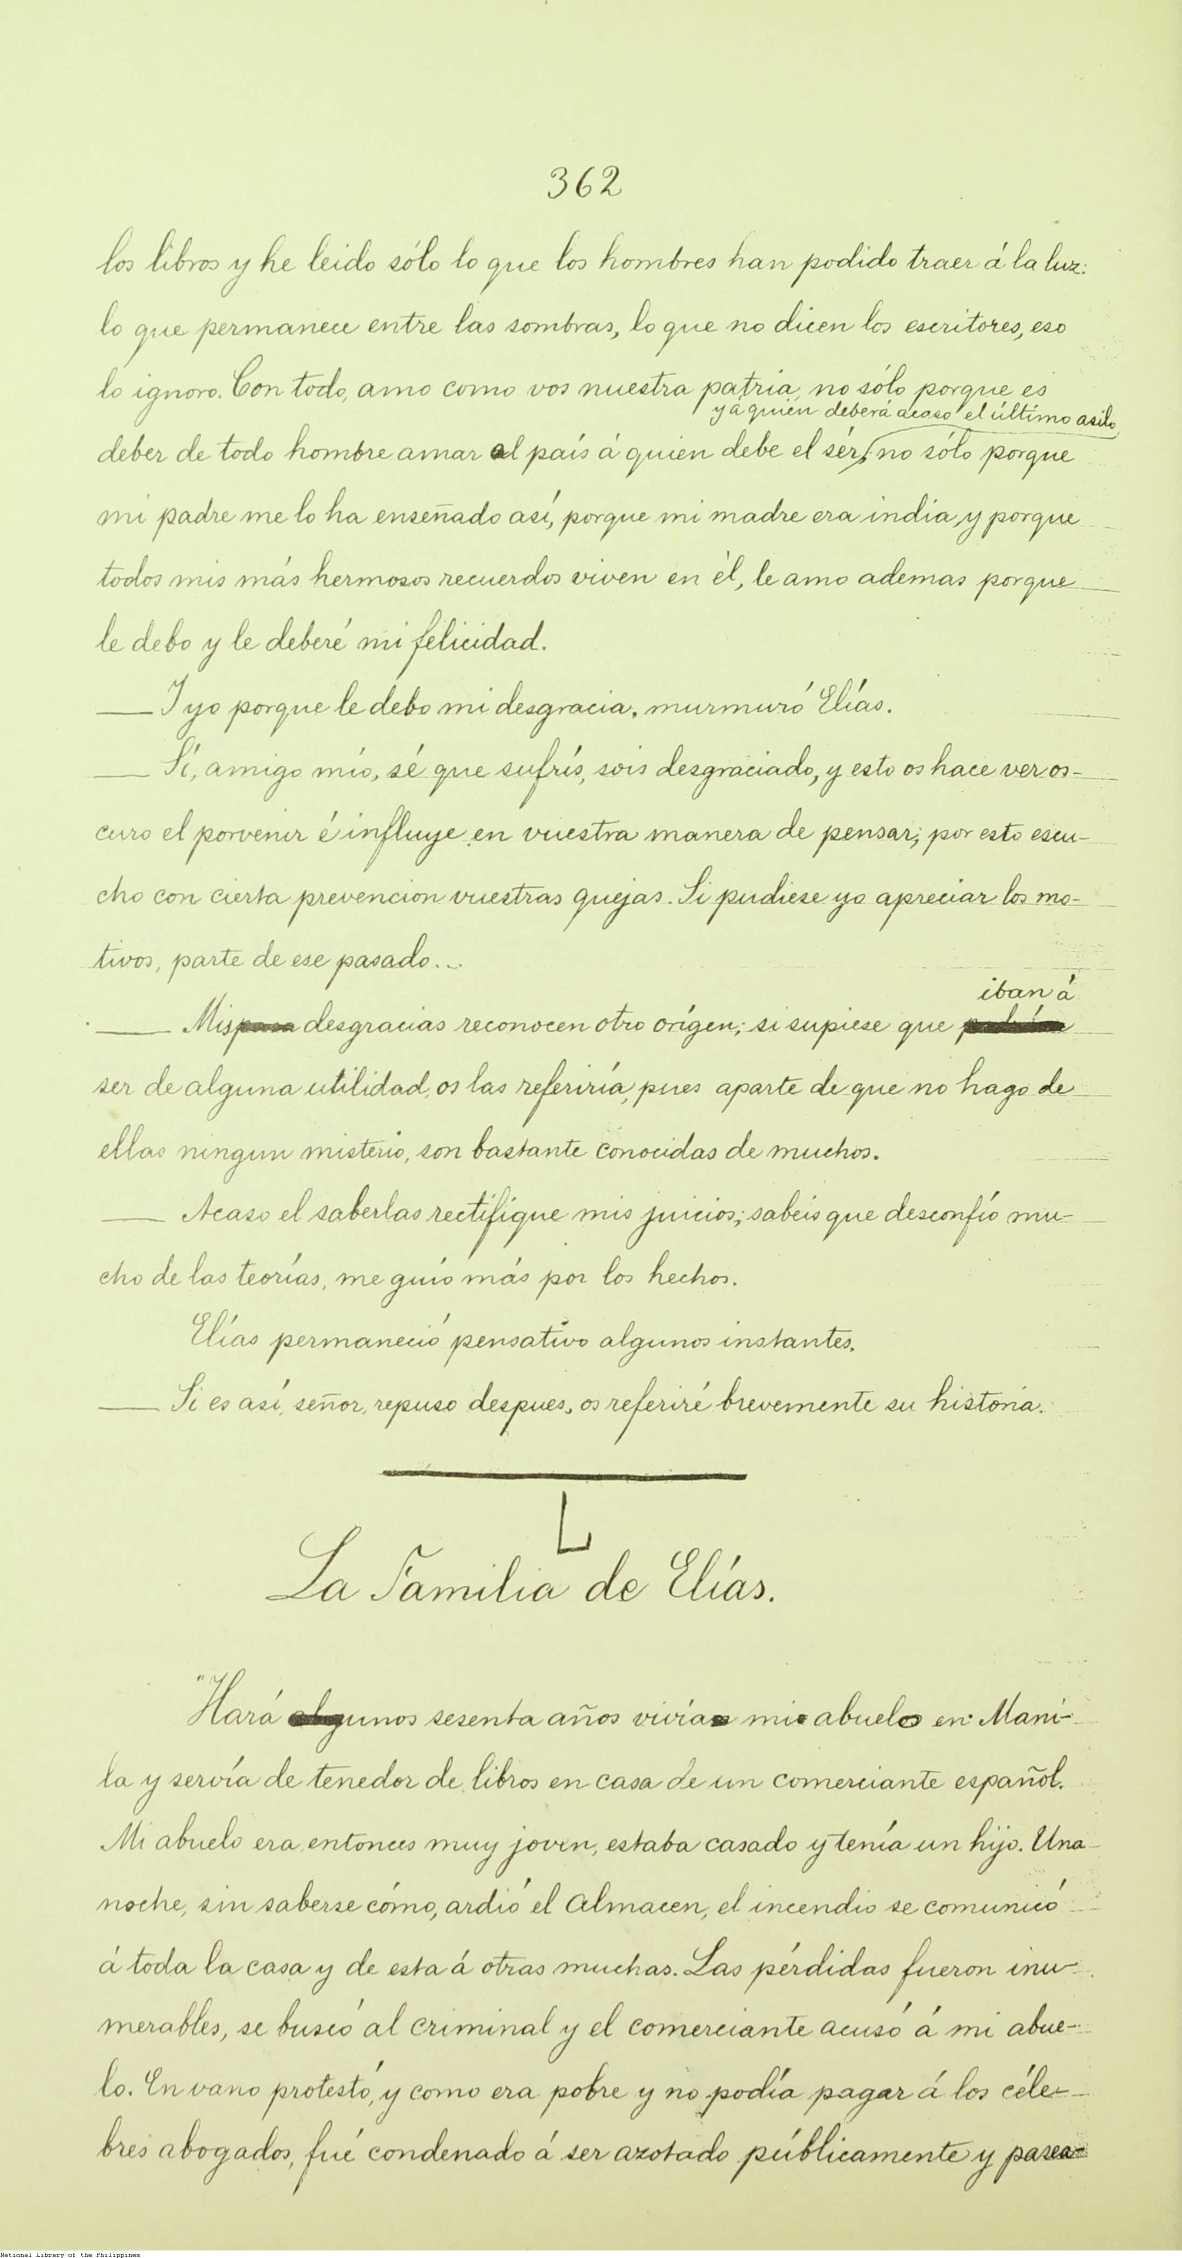 362
los libros y he leido sólo lo que los hombres han podido traer á la luz:
lo que permanece entre las sombras, lo que no dicen los escritores, eso
lo ignoro. Con todo, amo como vos nuestra patria, no sólo porque es
y á quien deberá acaso el último asilo,
deber de todo hombre amar al país á quien debe el sér, no sólo porque
mi padre me lo ha enseñado así, porque mi madre era india, y porque
todos mis más hermosos recuerdos viven en él, le amo ademas porque
le debo y le deberé mi felicidad.
— Y yo porque le debo mi desgracia, murmuró Elías.
— Sí, amigo mío, sé que sufrís, sois desgraciado, y esto os hace ver os-
curo el porvenir é influye en vuestra manera de pensar; por esto escu-
cho con cierta prevencion vuestras quejas. Si pudiese yo apreciar los mo-
tivos, parte de ese pasado...
iban á
— Mis desgracias reconocen otro orígen; si supiese que
ser de alguna utilidad, os las referiría, pues aparte de que no hago de
ellas ningun misterio, son bastante conocidas de muchos.
— Acaso el saberlas rectifique mis juicios; sabeis que desconfío mu-
cho de las teorías, me guío más por los hechos.
Elías permaneció pensativo algunos instantes.
— Si es así, señor, repuso despues, os referiré brevemente su historia.
L
La Familia de Elías.
"Hará unos sesenta años vivía mi abuelo en Mani-
la y servía de tenedor de libros en casa de un comerciante español.
Mi abuelo era entonces muy joven, estaba casado y tenía un hijo. Una
noche, sin saberse cómo, ardió el almacen, el incendio se comunicó
á toda la casa y de esta á otras muchas. Las pérdidas fueron inu-
merables, se buscó al criminal y el comerciante acusó á mi abue-
lo. En vano protestó, y como era pobre y no podía pagar á los céle-
bres abogados, fué condenado á ser azotado públicamente y pasea-
National Library of the Philippines